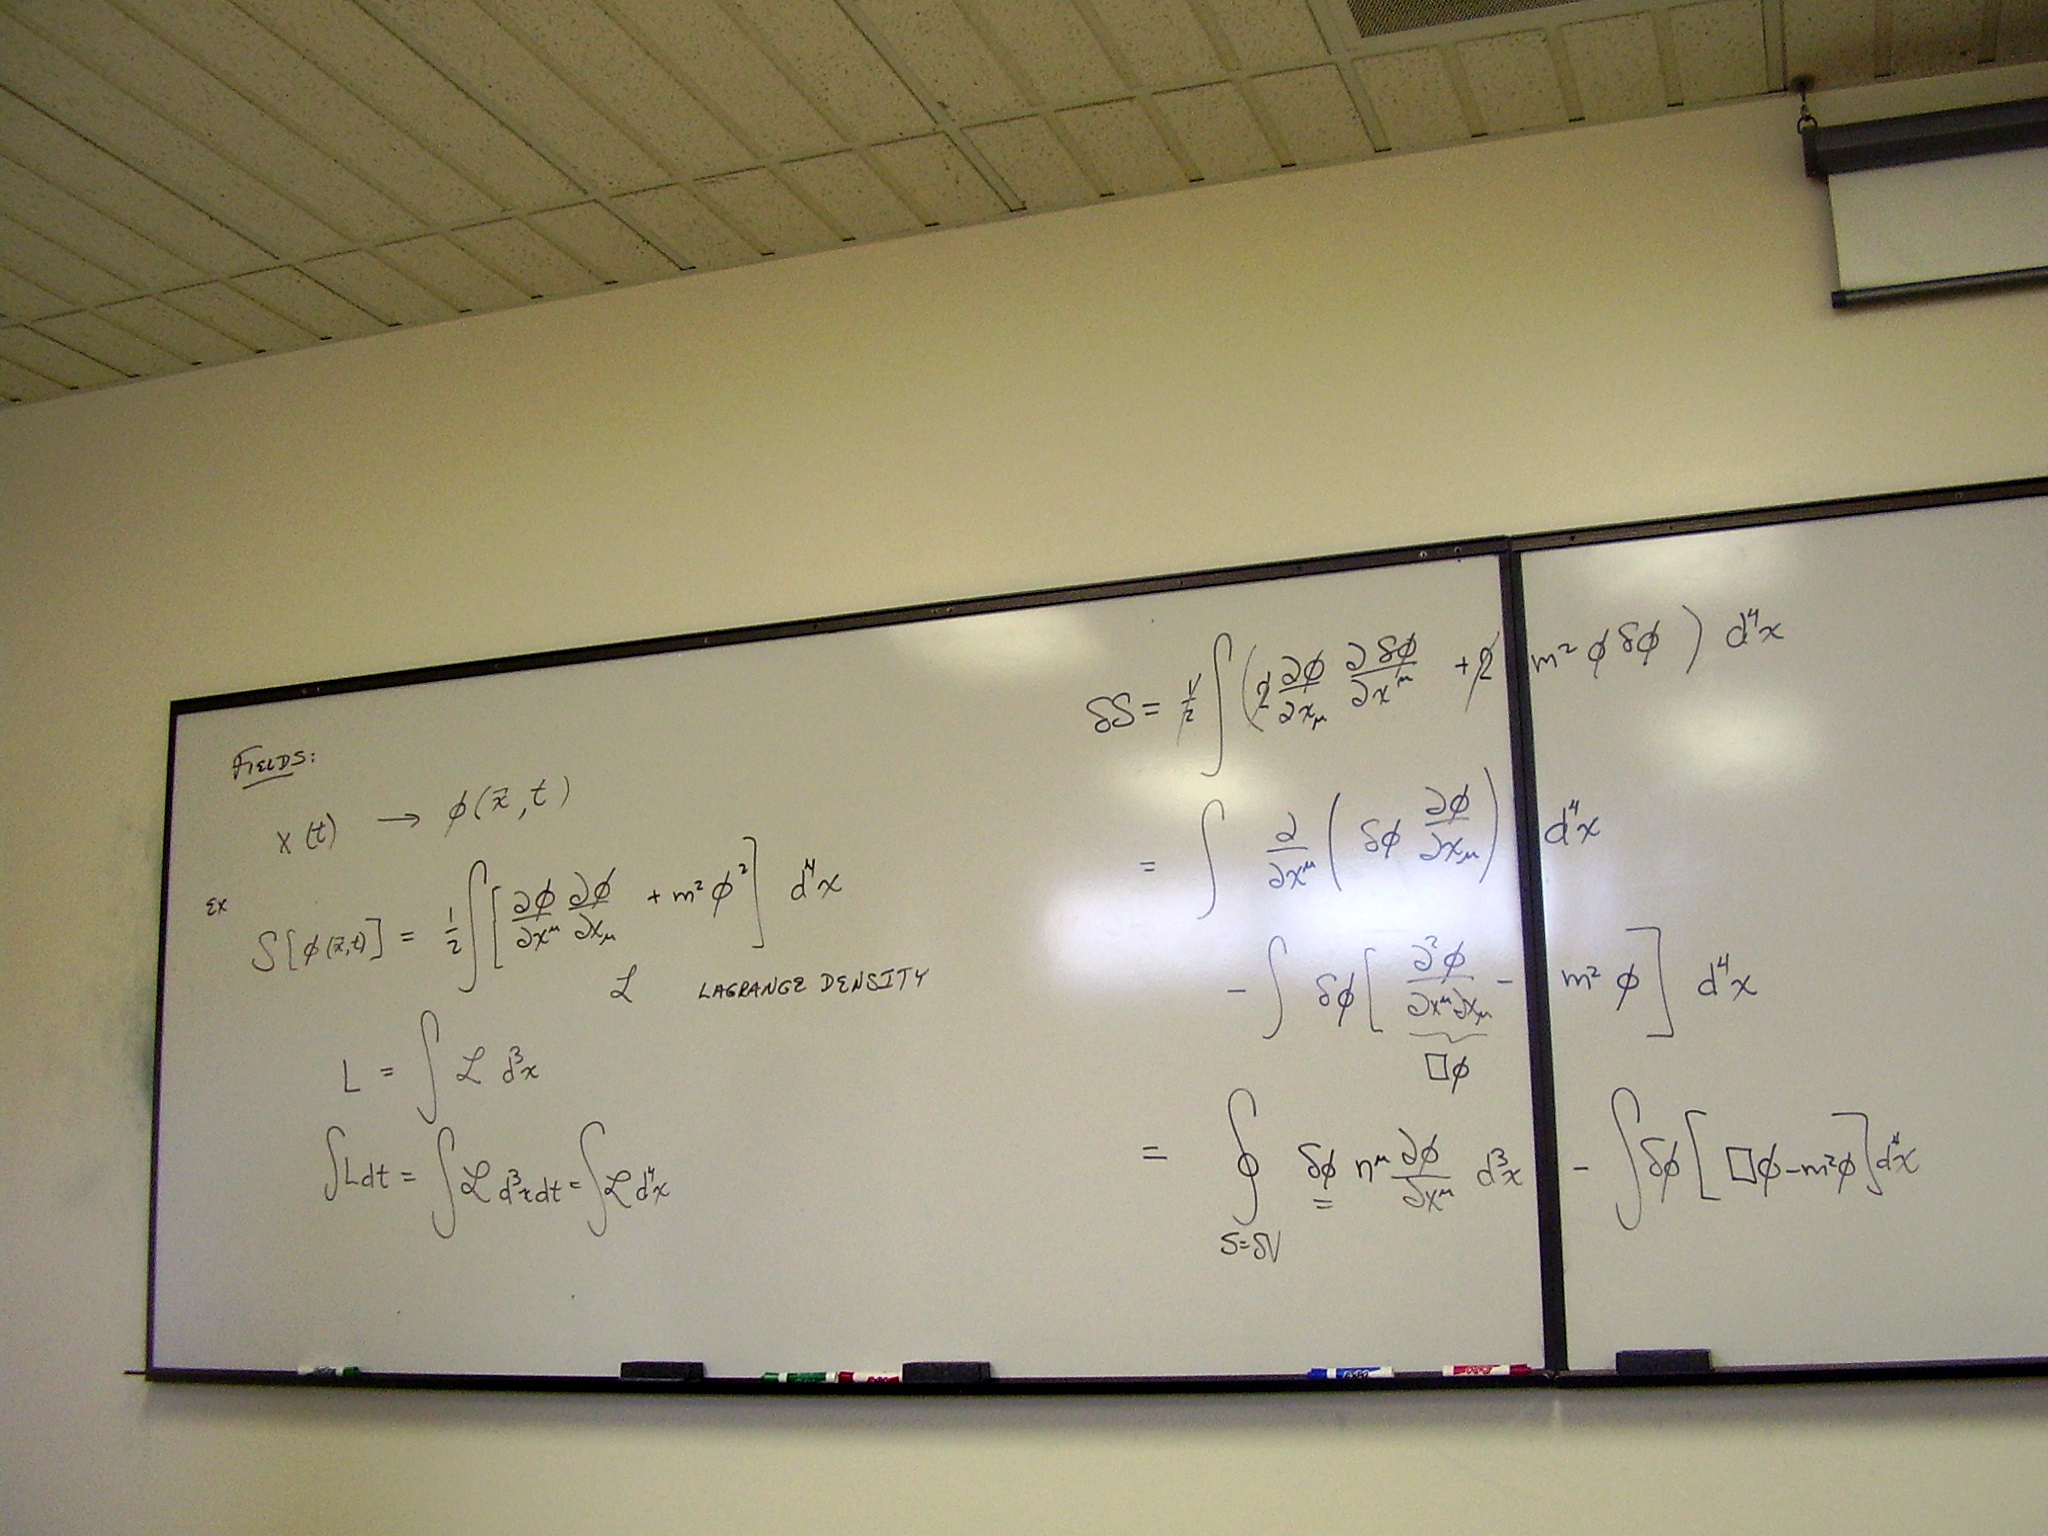 FIELDS:
x(t) → ϕ(x⃗,t)
EX
S[ϕ(x⃗,t)] = 1/2 ∫ [ ∂ϕ/∂x^μ ∂ϕ/∂x_μ + m² ϕ² ] d⁴x
ℒ LAGRANGE DENSITY
L = ∫ ℒ d³x
∫ L dt = ∫ ℒ d³x dt = ∫ ℒ d⁴x
δS = 1/2 ∫ ( 2 ∂ϕ/∂x_μ ∂δϕ/∂x^μ + 2 m² ϕ δϕ ) d⁴x
= ∫ ∂/∂x^μ ( δϕ ∂ϕ/∂x_μ ) d⁴x
- ∫ δϕ [ ∂²ϕ/∂x^μ∂x_μ - m² ϕ ] d⁴x
□ϕ
= ∮ δϕ n^μ ∂ϕ/∂x^μ d³x - ∫ δϕ [ □ϕ - m²ϕ ] d⁴x
S=δV